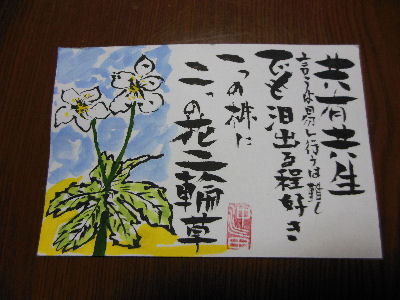 共有共生
言うは易し行うは難し
でも泪出る程好き
一つの樹に
二つの花 二輪草